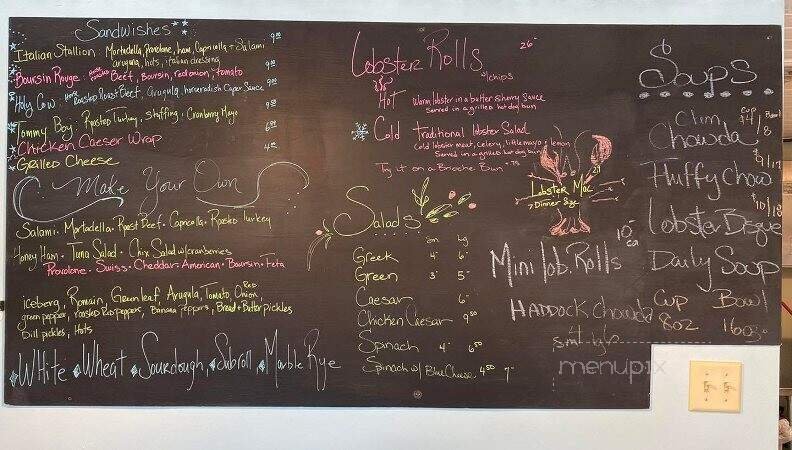 Sandwishes
Italian Stallion: Mortadella, Provolone, ham, Capricolla + Salami 9.00
arugula, hots, italian dressing
Boursin Rouge: Beef, Boursin, red onion, tomato 9.00
Holy Cow: Roasted Roast Beef, Arugula, horseradish Caper Sauce 9.00
Tommy Boy: Roasted Turkey, stuffing, Cranberry Mayo
Chicken Caeser Wrap
Grilled Cheese
Make Your Own
Salami · Mortadella · Roast Beef · Capricolla · Roasted Turkey
Honey Ham · Tuna Salad · Chix Salad w/cranberries
Provolone · Swiss · Cheddar · American · Boursin · Feta
iceberg, Romain, Greenleaf, Arugula, Tomato, Red Onion
green pepper, roasted Red peppers, Banana peppers, Bread + Butter pickles
Dill pickles, Hots
White Wheat Sourdough, Subroll, Marble Rye
Lobster Rolls 26-
w/chips
Hot warm lobster in a butter sherry sauce
Served in a grilled hot dog bun
Cold Traditional lobster Salad
Cold lobster meat, celery, little mayo + lemon
Served in a grilled hot dog bun
Try it on a Brioche Bun
Lobster Mac
Dinner Size
Salads
sm Lg
Greek 4- 6-
Green 3- 5-
Caesar 6-
Chicken Caesar 9.50
Spinach 4- 6.50
Spinach w/ Blue Cheese 4.50 7-
Mini lob. Rolls 10- ea
Haddock Chowda
sm lg
Soups
Cup Bowl
Clam Chowda $4/8
Fluffy Chow
Lobster Bisque
Daily Soup
Cup Bowl
8oz 16oz
menupix